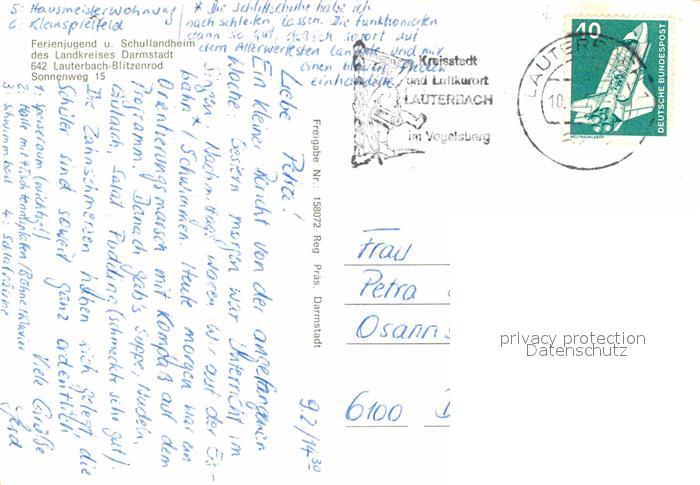 5: Hausmeisterwohnung
6: Kleinspielfeld
* Die Schlittschuhe habe ich
nachschleifen lassen. Die funktionierten
dann so gut, daß ich sofort auf
dem Allerwertesten landete und mir
einen blauen Flecken
einhandelte
Ferienjugend u. Schullandheim
des Landkreises Darmstadt
642 Lauterbach-Blitzenrod
Sonnenweg 15
1: Speiseraum (wichtig!)
2: Halle mit 4 Tischtennisplatten, Bühne, Klavier
3: Schwimmbad 4: Schlafräume
9.2/14 30
Liebe Petra!
Ein kleiner Bericht von der angefangenen
Woche. Gestern morgen war Unterricht im
Singen. Nachmittags waren wir auf der Eis-
bahn*/Schwimmen. Heute morgen war ein
Orientierungsmarsch mit Kompaß auf dem
Programm. Danach gab's Suppe, Nudeln,
Gulasch, Salat, Pudding (schmeckte sehr gut).
Die Zahnschmerzen haben sich gelegt, die
Schüler sind soweit ganz ordentlich.
Viele Grüße
Freigabe Nr.: 158072 Reg Präs. Darmstadt
Kreisstadt
und Luftkurort
LAUTERBACH
im Vogelsberg
LAUTERB
10.
40
DEUTSCHE BUNDESPOST
WELTRAUMLABOR
Frau
Petra
Osann
6100 D
privacy protection
Datenschutz